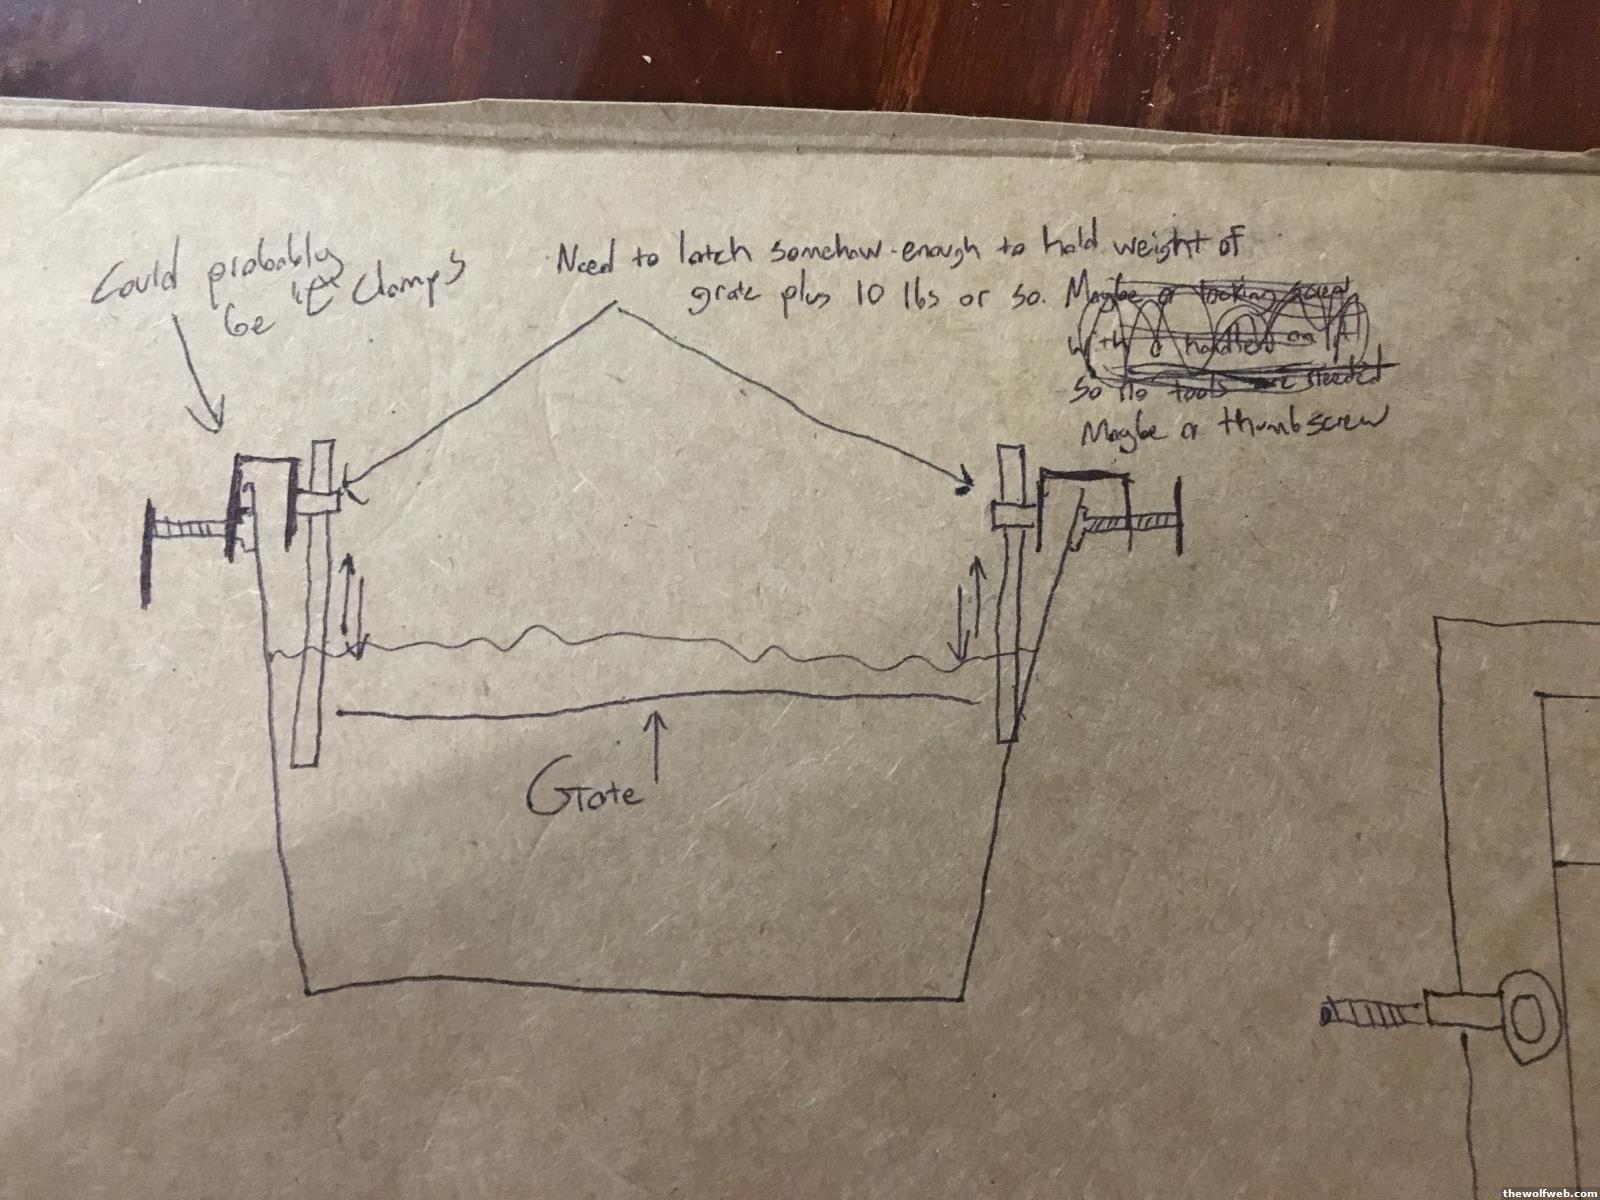 Could probably
be "C" Clamps
Need to latch somehow enough to hold weight of
grate plus 10 lbs or so. Maybe a locking screw
with a handle on it
so no tools are needed
Maybe a thumbscrew
Grate
thewolfweb.com